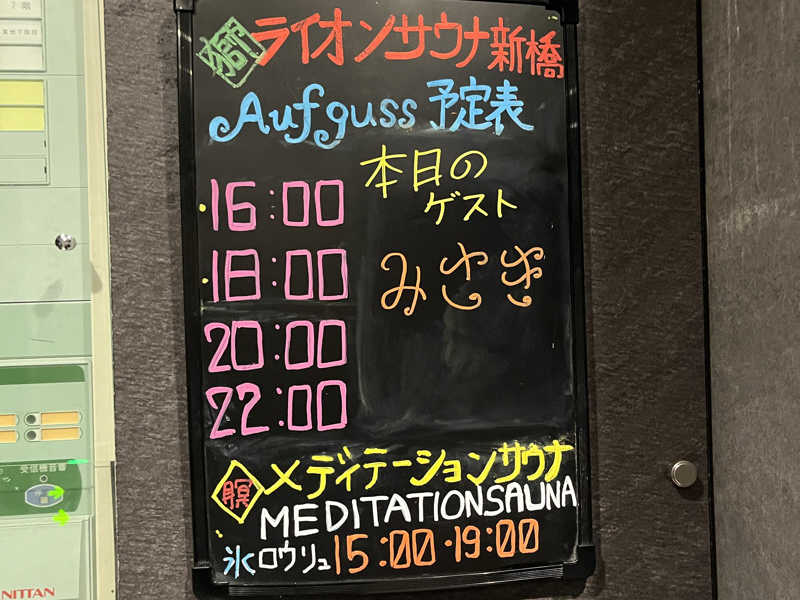 獅ライオンサウナ新橋
Aufguss 予定表
本日の
ゲスト
みさき
・16:00
・18:00
20:00
22:00
瞑 メディテーションサウナ
MEDITATIONSAUNA
氷ロウリュ 15:00・19:00
受信機百番
NITTAN